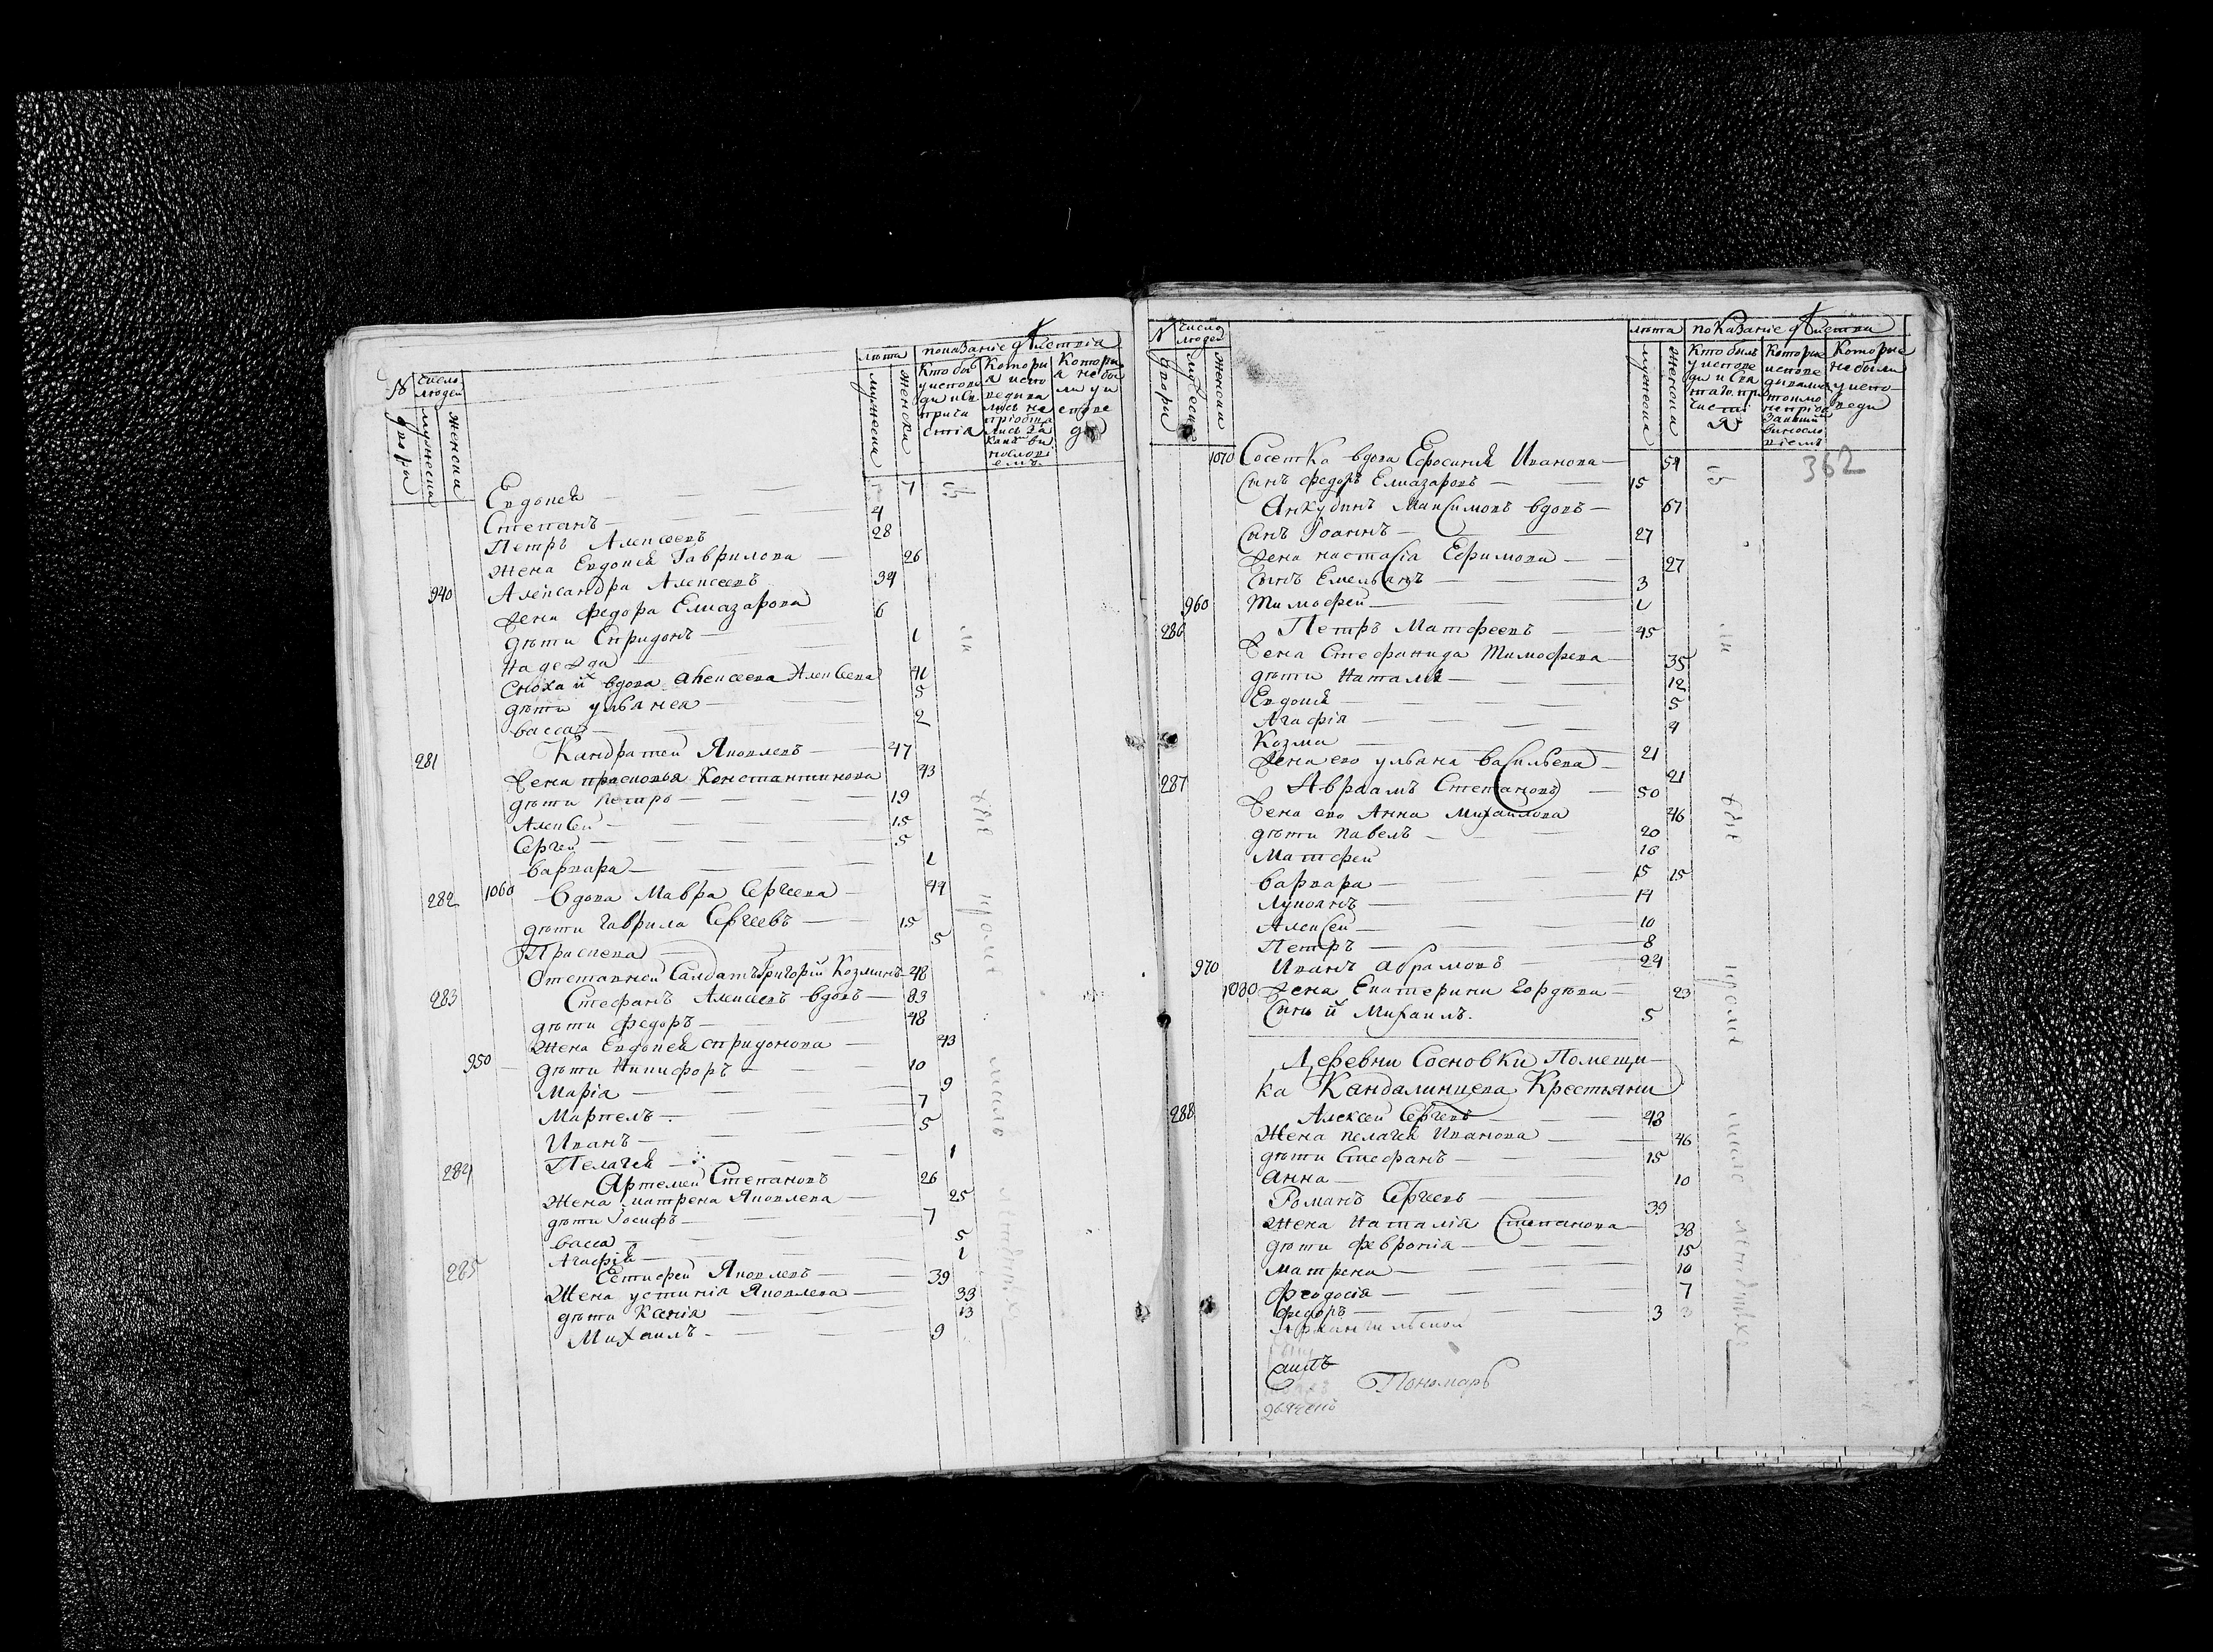 №
число людей
лѣта
показанiе дѣйствiа
двора
мужеска
женска
мужеска
женска
Кто был у исповеди и св причастiя
Которыя исповедывались не прiобщались за каким виносло вiемъ
Которыя не были у исповеди
Евдокея — 7
Степанъ — 4
Петръ Алексеевъ 28
Жена Евдокея Гаврилова — 26
940 Александра Алексеевъ 34
Жена федора Елиазарова
дѣти Спридонъ — 6
надежда — 1
Сноха й вдова Алексеева
дѣти ульянея — 41
васса — 5
2
281 Кандратей Яковлевъ — 47
Жена прасковья Константинова 43
дѣти Петръ — 19
Алексей — 15
Сергей — 5
варвара — 1
282 1060 вдова Мавра Сергеева — 44
дѣти гаврила Сергеевъ — 15
Праскева — 5
Отставной Салдатъ Григорiй Козминъ 48
283 Стефанъ Алексеевъ вдовъ — 83
дѣти федоръ — 48
Жена Евдокея спридонова — 43
950 дѣти Никифоръ — 10
Марiа — 9
Мартемъ — 7
Иванъ — 5
Пелагея — 1
284 Артемей Степановъ 26
Жена матрена Яковлева — 25
дѣти Iосифъ — 7
васса — 5
Агафiя — 1
285 Яковлевъ — 39
Жена устинiа Яковлева — 33
дѣти Ксенiа — 13
Михаилъ — 9
№
число людей
лѣта
показанiе дѣйства
двора
мужеска
женска
мужеска
женска
Кто былъ у исповеди и Свя таго причастiя
Которые исповедывались токмо не прiоб за каким виносло вiемъ
Которые не были у исповеди
362
1070 Сосетка вдова Ефросиния Иванова — 54
Сынъ федоръ Елиазаровъ — 15
Анкудинъ Максимовъ вдовъ — 67
Сынъ Iоаннъ — 27
Жена настасiа Ефимова — 27
Сынъ Емельянъ — 3
960 Тимофей — 1
286 Петръ Матфеевъ — 45
Жена Стефанида Тимофева — 35
дѣти Наталiя — 12
Евдокия — 5
Агафiа — 4
Козма — 21
Жена его ульяна васильева — 21
287 Авраамъ Степановъ — 50
Жена его Анна Михайлова 46
дѣти павелъ — 20
Матфей 16
варвара — 15 15
Лукоянъ — 14
Алексей — 10
Петръ — 8
970 Иванъ абрамовъ — 24
1080 Жена Екатерина гордѣева — 23
Сынъ й Михаилъ. 5
Деревни Сосновки Помещи-
ка Кандалинцева Крестьяни
288 Алексей Сергеевъ — 48
Жена пелагея Иванова — 46
дѣти Стефанъ — 15
анна — 10
Романъ Сергеевъ — 39
Жена Наталiа Степанова — 38
дѣти февронiа — 15
матрена — 10
феодосiа — 7
федоръ — 3
Архангельской
Пономарь